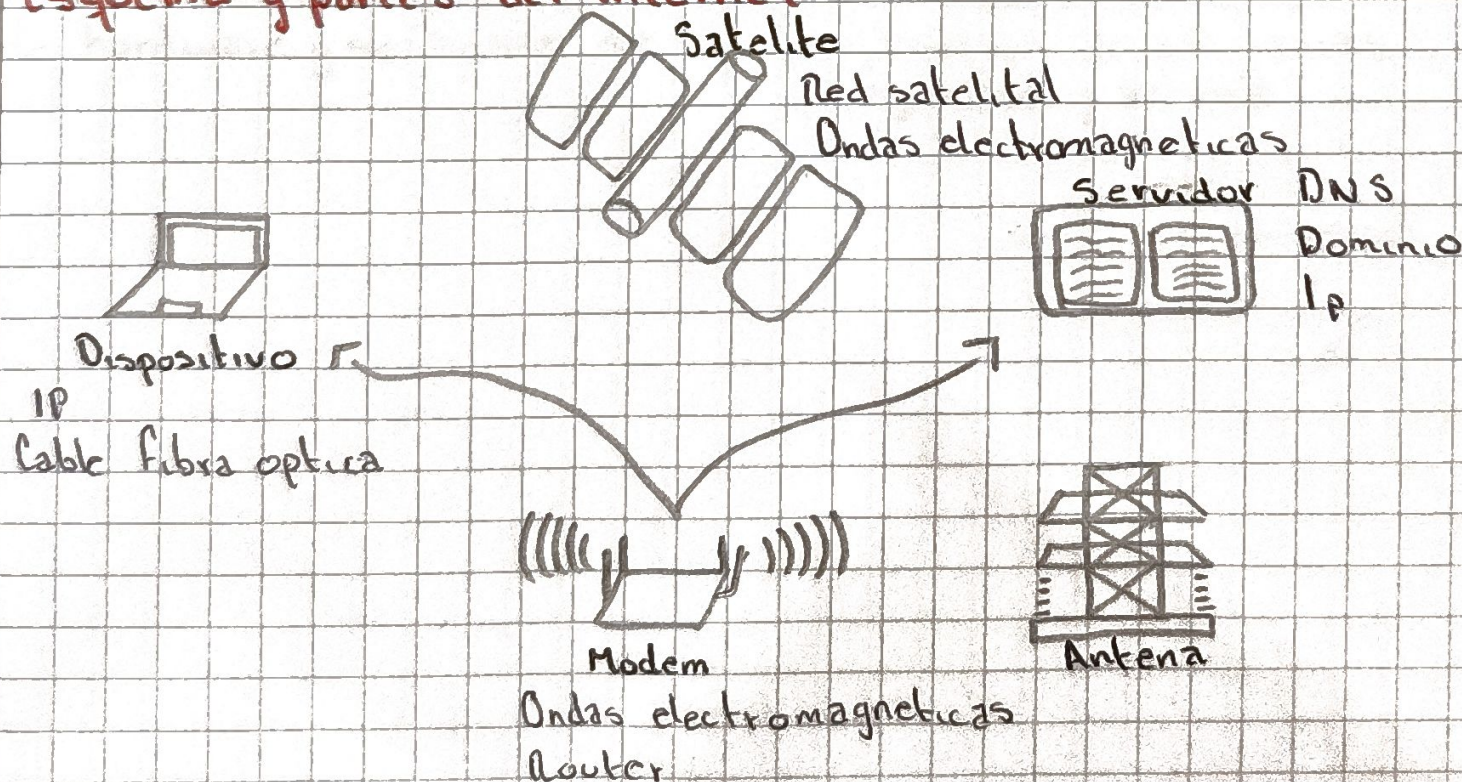 Esquema y partes del internet
Satelite
Red satelital
Ondas electromagneticas
Servidor DNS
Dominio
Ip
Dispositivo
IP
Cable fibra optica
Modem
Ondas electromagneticas
Router
Antena